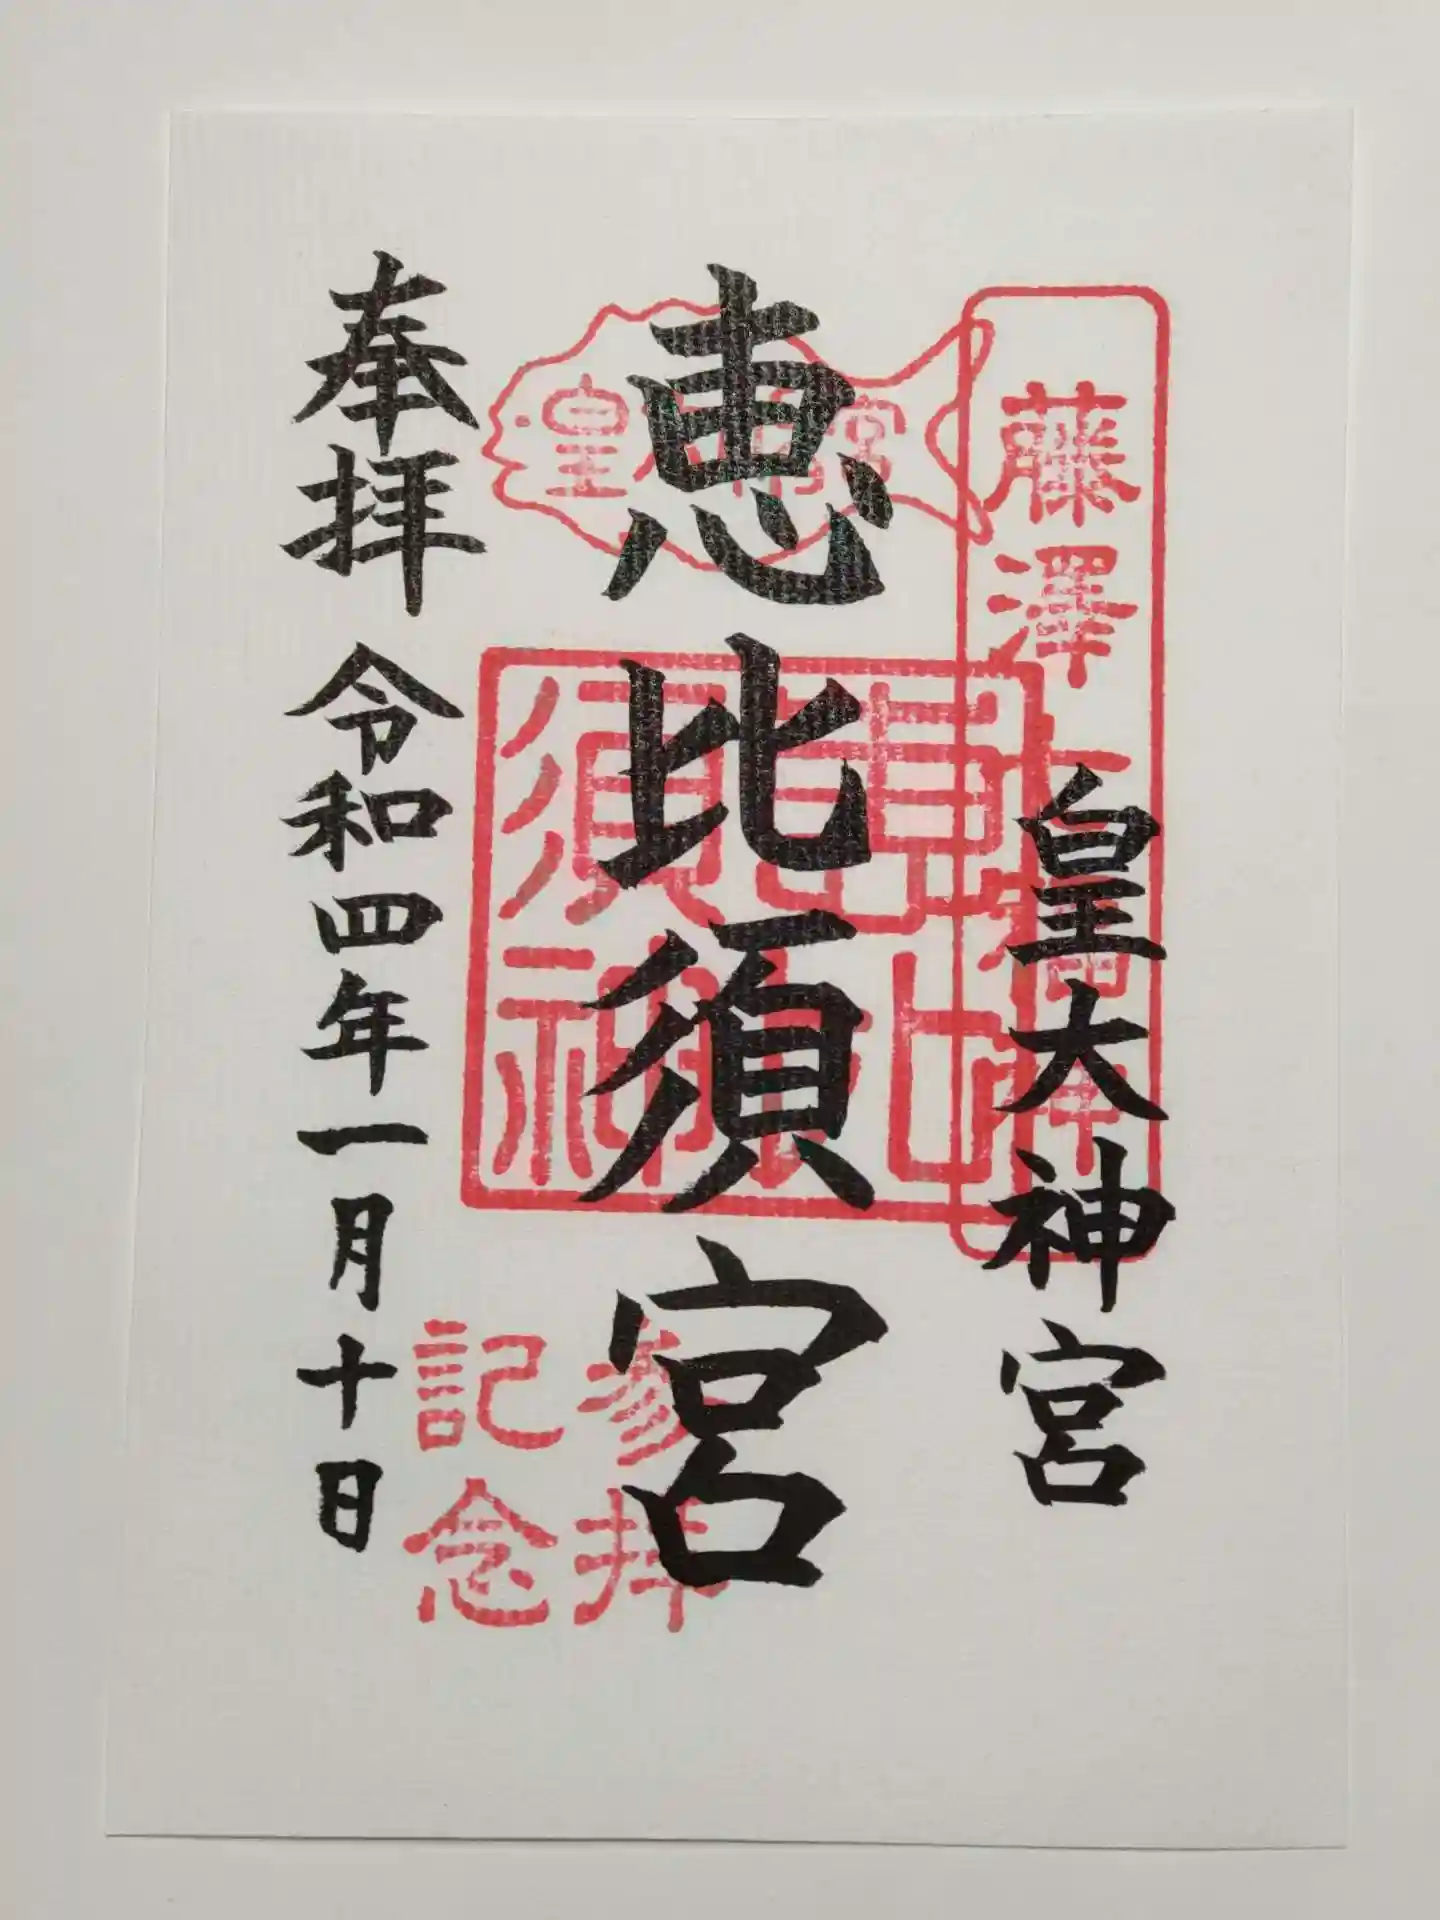 藤澤七福神
皇大神宮
皇大神宮
恵比須宮
恵比須神
参拝
記念
奉拝 令和四年一月十日